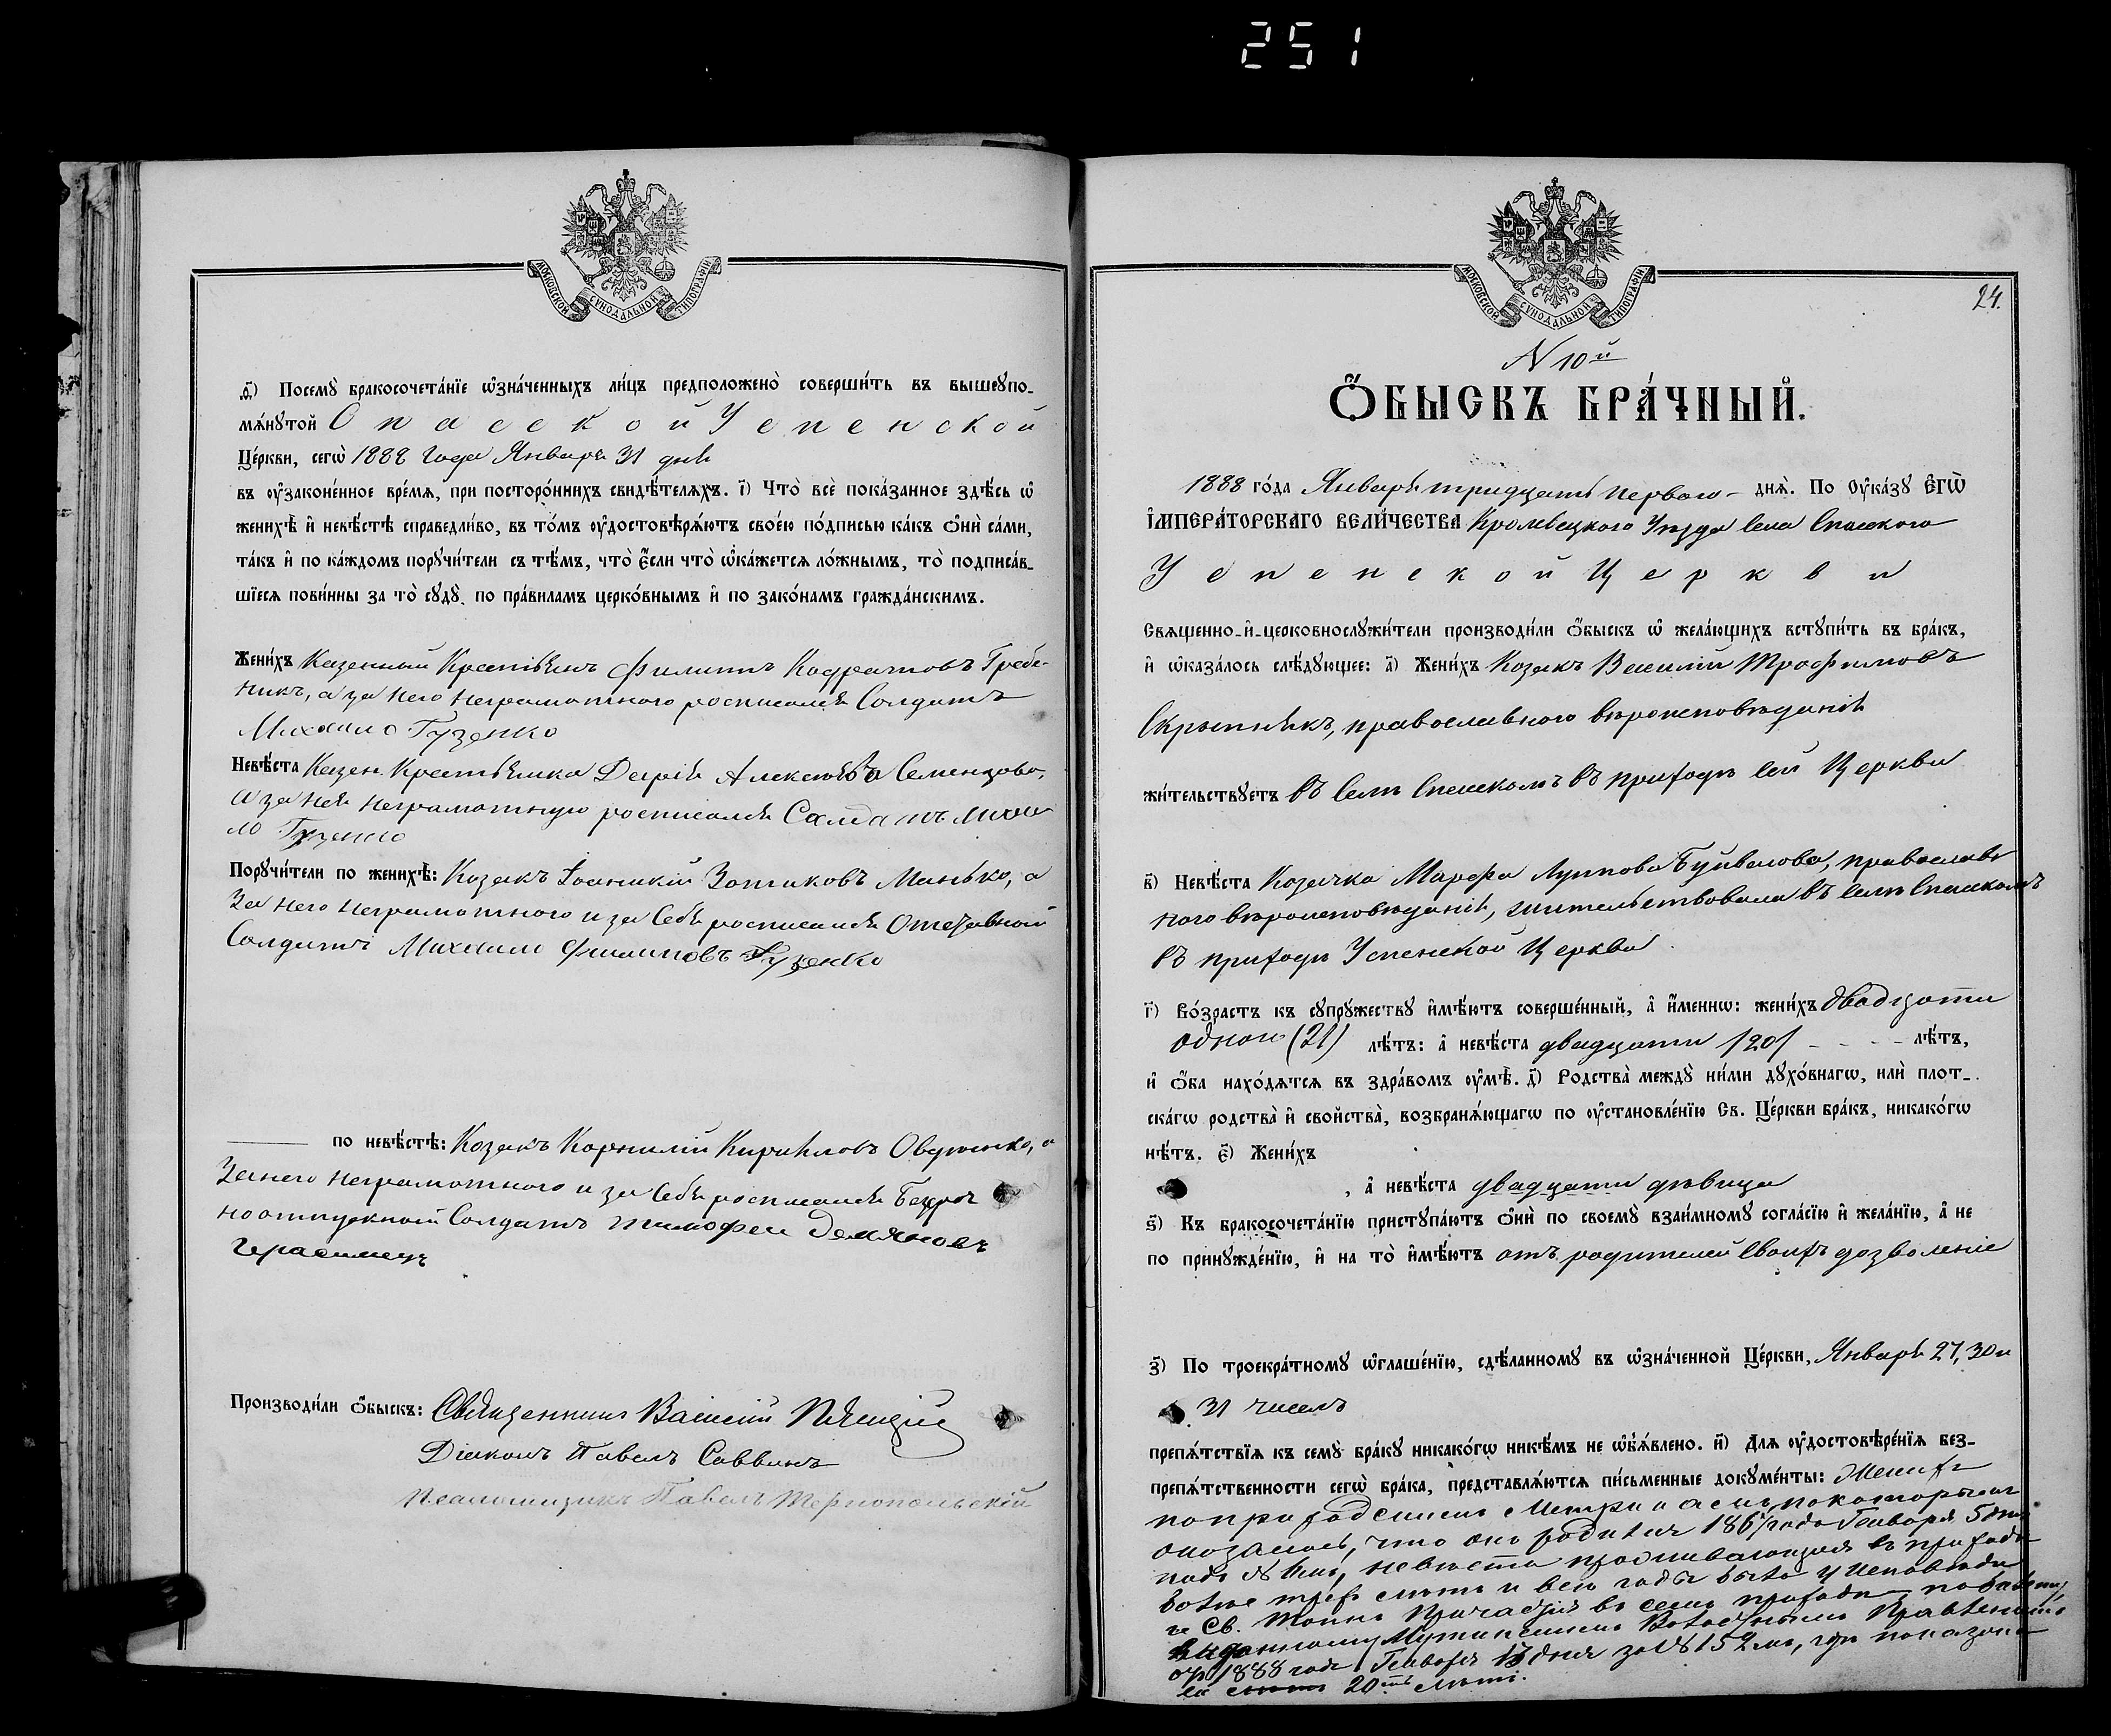 251
МОСКОВСКОЙ СѴНОДАЛЬНОЙ ТИПОГРАФІИ
д҃) Посемꙋ̀ бракосочета́нїе ѡ҆зна́ченныхъ ли́цъ предположено̀ соверши́ть въ вышеꙋпо-
мѧ́нꙋтой Спасской Успенской
Це́ркви, сегѡ̀ 1888 года Января 31 дня
въ ᲂу҆законе́нное вре́мѧ, при посторо́ннихъ свидѣ́телѧхъ. і҃) Что̀ всѐ пока́занное здѣ́сь ѡ҆
женихѣ̀ и҆ невѣ́стѣ справедли́во, въ то́мъ ᲂу҆достовѣрѧ́ютъ свое́ю по́дписью ка́къ ѻ҆нѝ са́ми,
та́къ и҆ по ка́ждомъ порꙋчи́тели съ тѣ́мъ, что̀ є҆́сли что̀ ѡ҆ка́жетсѧ ло́жнымъ, то̀ подписа́в-
шїесѧ пови́нны за то̀ сꙋдꙋ̀ по пра́виламъ церко́внымъ и҆ по зако́намъ гражда́нскимъ.
Жени́хъ Казенный Крестьянинъ Филиппъ Кодратовъ Гребе-
никъ, а за него неграмотного росписался Солдатъ
Михаило Гузенко
Невѣ́ста Казен. Крестьянка Дарія Алексіева Семенцова,
а за нея неграмотную росписался Салдатъ Михаи
ло Гузенко
Порꙋчи́тели по женихѣ̀: Козакъ Іоаникій Зотиковъ Манько, а
за него неграмотного и за себя росписался Отставной
Солдатъ Михаило Филиповъ Гузенко
по невѣ́стѣ: Козакъ Корнилій Кириловъ Овдіенко, а
за него неграмотного и за себя росписался Безсроч
ноотпускной Солдатъ Тимофеи Демяновъ
Герасимецъ
Производи́ли ѻ҆́быскъ: Священникъ Василій
Діаконъ Павелъ Саввинъ
Псаломщикъ Павелъ Тернопольскій
МОСКОВСКОЙ СѴНОДАЛЬНОЙ ТИПОГРАФІИ
24.
N 10й
Ѻ҆́БЫСКЪ БРА́ЧНЫЙ.
1888 го́да Января тридцать перваго - днѧ̀. По ᲂу҆ка́зꙋ є҆гѡ̀
і҆мпера́торскаго вели́чества Кролевецкого Уѣзда Села Спаского
Успенской Церкви
Свѧщенно-и҆-церковнослꙋжи́тели производи́ли ѻ҆́быскъ ѡ҆ жела́ющихъ встꙋпи́ть въ бра́къ,
и҆ ѡ҆каза́лось слѣ́дꙋющее: а҃) Жени́хъ Козакъ Василій Трофимовъ
Скрыпнякъ, православного вѣроисповѣданія
жи́тельствꙋетъ въ Селѣ Спасскомъ въ приходѣ сей Церкви
в҃) Невѣ́ста Козачка Марфа Луппова Буйвалова, православ
ного вѣроисповѣданія, жительствовала въ селѣ Спасскомъ
въ приходѣ Успенской Церкви
г҃) Во́зрастъ къ сꙋпрꙋ́жествꙋ и҆мѣ́ютъ соверше́нный, а҆ и҆́меннѡ: жени́хъ двадцати
одного (21) лѣ́тъ: а҆ невѣ́ста двадцати /20/ - - - - лѣ́тъ,
и҆ ѻ҆́ба нахо́дѧтсѧ въ здра́вомъ ᲂу҆мѣ̀. д҃) Родства̀ междꙋ̀ ни́ми дꙋхо́внагѡ, илѝ плот-
ска́гѡ родства̀ и҆ свойства̀, возбранѧ́ющагѡ по ᲂу҆становле́нїю Св. Це́ркви бра́къ, никако́гѡ
нѣ́тъ. є҃) Жени́хъ
, а҆ невѣ́ста двадцати дѣвица
ѕ҃) Къ бракосочета́нїю пристꙋпа́ютъ ѻ҆нѝ по своемꙋ̀ взаи́мномꙋ согла́сїю и҆ жела́нїю, а҆ не
по принꙋжде́нїю, и҆ на то̀ и҆мѣ́ютъ отъ родителей своихъ дозволеніе
з҃) По троекра́тномꙋ ѡ҆глаше́нїю, сдѣ́ланномꙋ въ ѡ҆зна́ченной Це́ркви, Января 27, 30 и
31 чиселъ
препѧ́тствїѧ къ семꙋ̀ бра́кꙋ никако́гѡ никѣ́мъ не ѡ҆б̾ѧ́влено. и҃) Длѧ ᲂу҆достовѣре́нїѧ без-
препѧ́тственности сегѡ̀ бра́ка, представлѧ́ютсѧ пи́сьменные докꙋме́нты: Женихъ
по приходскимъ Метрикамъ, по которымъ
оказалось, что онъ родился 1867 года Генваря 5 дня
подъ №, невѣста проживающая въ приходѣ
болѣе трехъ лѣтъ и всѣ годы была у исповѣди
и Св. Тайнъ Причастія въ семъ приходѣ по билету,
выданному Мутинскимъ Волостнымъ Правленіемъ
отъ 1888 года Генваря 13 дня за № 152мъ, гдѣ показано
ей 20ть лѣтъ.